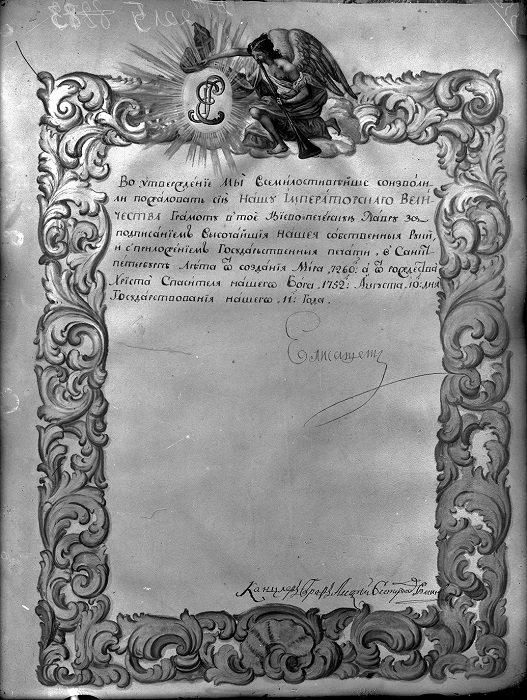 Во утверждение Мы Всемилостивѣйше соизволи-
ли пожаловать сію Нашу Імператорскаго Вели-
чества Грамоту в тоѣ Кіево-печерскую Лавру за
подписаниемъ Высочайшія нашея собственныя Руки,
и с приложениемъ Государственныя печати, в Санкт
петербургѣ Лѣта ѿ созданія Міра, 7260: а ѿ рождества
Христа Спасителя нашего Бога, 1752: Августа, 10: дня
Государствования нашего, 11: Года.
Елисаветъ
Канцлеръ Графъ Алексѣй Бестужевъ Рюминъ